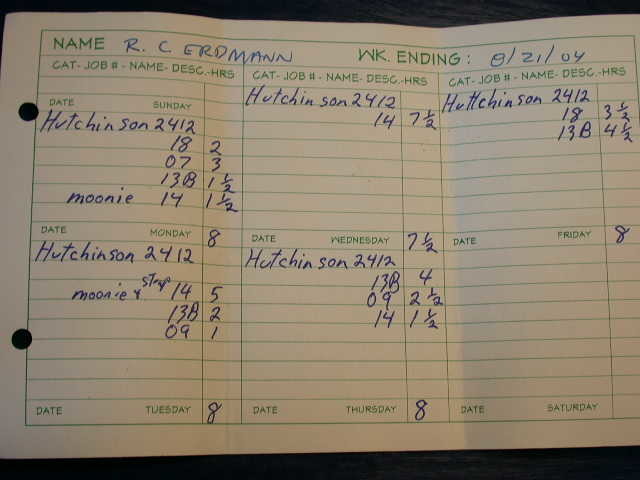 NAME R. C ERDMANN WK. ENDING: 8/21/04
CAT- JOB # - NAME- DESC.-HRS
DATE SUNDAY
Hutchinson 2412
18 2
07 3
13B 1 1/2
moonie 14 1 1/2
DATE MONDAY 8
Hutchinson 2412
moonie & Strap 14 5
13B 2
09 1
DATE TUESDAY 8
CAT- JOB # - NAME- DESC.-HRS
Hutchinson 2412
14 7 1/2
DATE WEDNESDAY 7 1/2
Hutchinson 2412
13B 4
09 2 1/2
14 1 1/2
DATE THURSDAY 8
CAT- JOB # - NAME- DESC.-HRS
Huttchinson 2412
18 3 1/2
13B 4 1/2
DATE FRIDAY 8
DATE SATURDAY